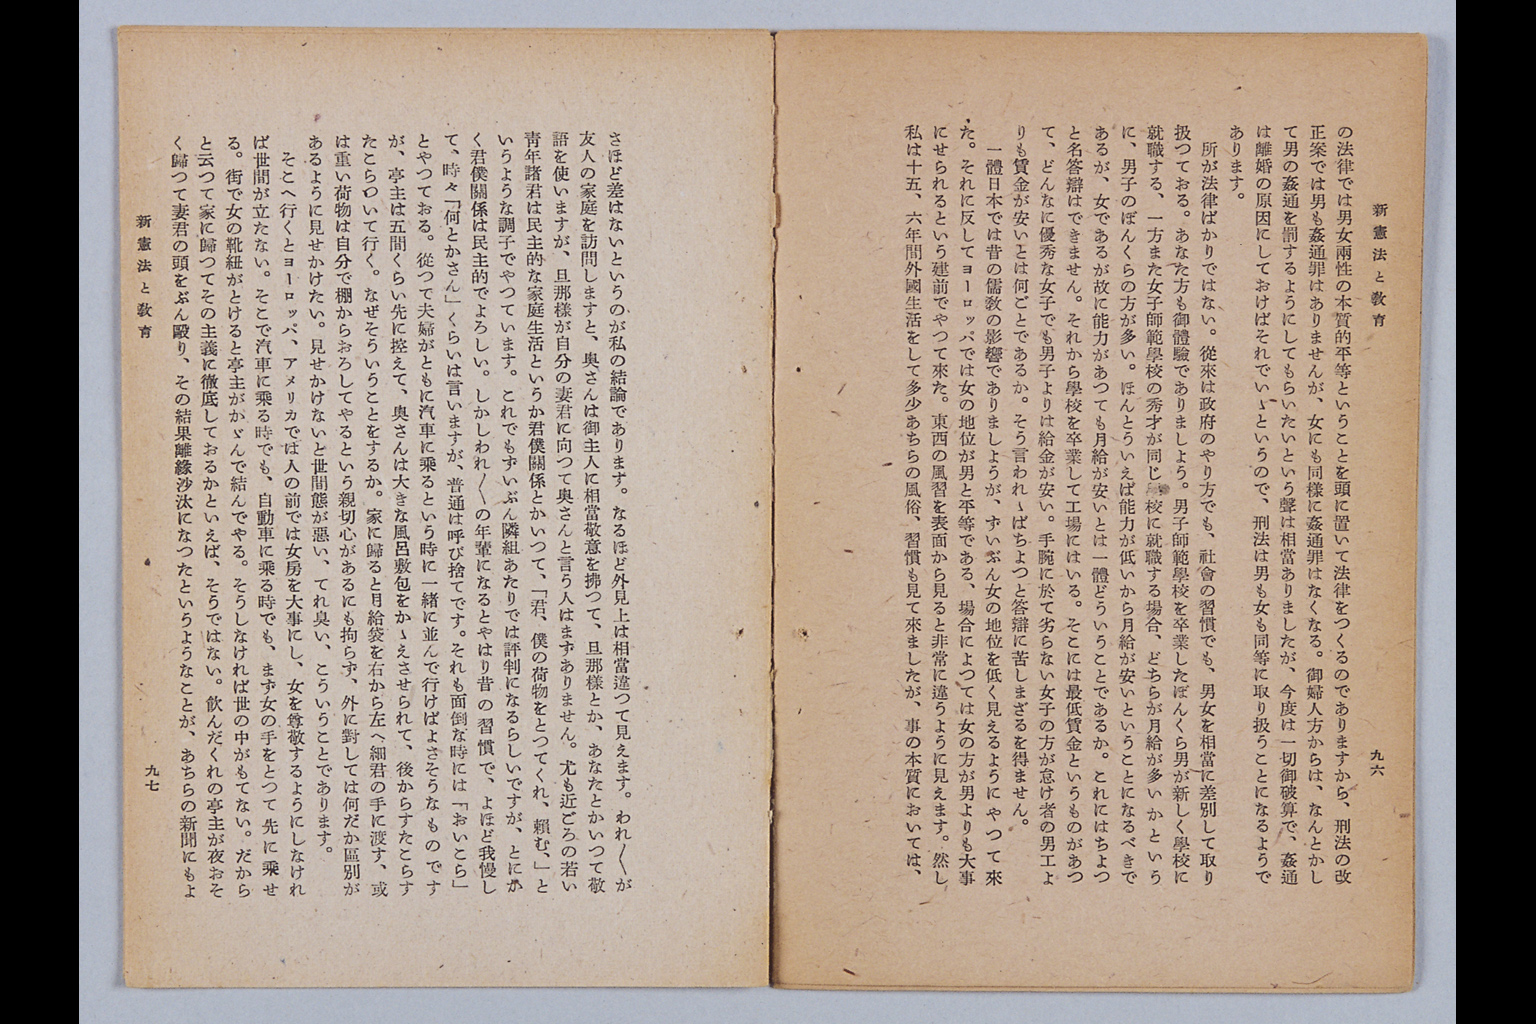 新憲法と敎育
九六
の法律では男女兩性の本質的平等ということを頭に置いて法律をつくるのでありますから、刑法の改
正案では男も姦通罪はありませんが、女にも同樣に姦通罪はなくなる。御婦人方からは、なんとかし
て男の姦通を罰するようにしてもらいたいという聲は相當ありましたが、今度は一切御破算で、姦通
は離婚の原因にしておけばそれでいゝというので、刑法は男も女も同等に取り扱うことになるようで
あります。
所が法律ばかりではない。從來は政府のやり方でも、社會の習慣でも、男女を相當に差別して取り
扱つておる。あなた方も御體驗でありましよう。男子師範學校を卒業したぼんくら男が新しく學校に
就職する、一方また女子師範學校の秀才が同じ校に就職する場合、どちらが月給が多いかという
に、男子のぼんくらの方が多い。ほんとういえば能力が低いから月給が安いということになるべきで
あるが、女であるが故に能力があつても月給が安いとは一體どういうことであるか。これにはちよつ
と名答辯はできません。それから學校を卒業して工場にはいる。そこには最低賃金というものがあつ
て、どんなに優秀な女子でも男子よりは給金が安い。手腕に於て劣らない女子の方が怠け者の男工よ
りも賃金が安いとは何ごとであるか。そう言われゝばちよつと答辯に苦しまざるを得ません。
一體日本では昔の儒敎の影響でありましようが、ずいぶん女の地位を低く見えるようにやつて來
た。それに反してヨーロッパでは女の地位が男と平等である、場合によつては女の方が男よりも大事
にせられるという建前でやつて來た。東西の風習を表面から見ると非常に違うように見えます。然し
私は十五、六年間外國生活をして多少あちらの風俗、習慣も見て來ましたが、事の本質においては、
さほど差はないというのが私の結論であります。なるほど外見上は相當違つて見えます。われ〳〵が
友人の家庭を訪問しますと、奥さんは御主人に相當敬意を拂つて、旦那樣とか、あなたとかいつて敬
語を使いますが、旦那樣が自分の妻君に向つて奥さんと言う人はまずありません。尤も近ごろの若い
靑年諸君は民主的な家庭生活というか君僕關係とかいつて、「君、僕の荷物をとつてくれ、賴む、」と
いうような調子でやつています。これでもずいぶん隣組あたりでは評判になるらしいですが、とにか
く君僕關係は民主的でよろしい。しかしわれ〳〵の年輩になるとやはり昔の習慣で、よほど我慢し
て、時々「何とかさん」くらいは言いますが、普通は呼び捨てです。それも面倒な時には「おいこら」
とやつておる。從つて夫婦がともに汽車に乘るという時に一緖に並んで行けばよさそうなものです
が、亭主は五間くらい先に控えて、奥さんは大きな風呂敷包をかゝえさせられて、後からすたこらす
たこらついて行く。なぜそういうことをするか。家に歸ると月給袋を右から左へ細君の手に渡す、或
は重い荷物は自分で棚からおろしてやるという親切心があるにも拘らず、外に對しては何だか區別が
あるように見せかけたい。見せかけないと世間態が惡い、てれ臭い、こういうことであります。
そこへ行くとヨーロッパ、アメリカでは人の前では女房を大事にし、女を尊敬するようにしなけれ
ば世間が立たない。そこで汽車に乘る時でも、自動車に乘る時でも、まず女の手をとつて先に乘せ
る。街で女の靴紐がとけると亭主がかゞんで結んでやる。そうしなければ世の中がもてない。だから
と云つて家に歸つてその主義に徹底しておるかといえば、そうではない。飮んだくれの亭主が夜おそ
く歸つて妻君の頭をぶん毆り、その結果離緣沙汰になつたというようなことが、あちらの新聞にもよ
新憲法と敎育
九七